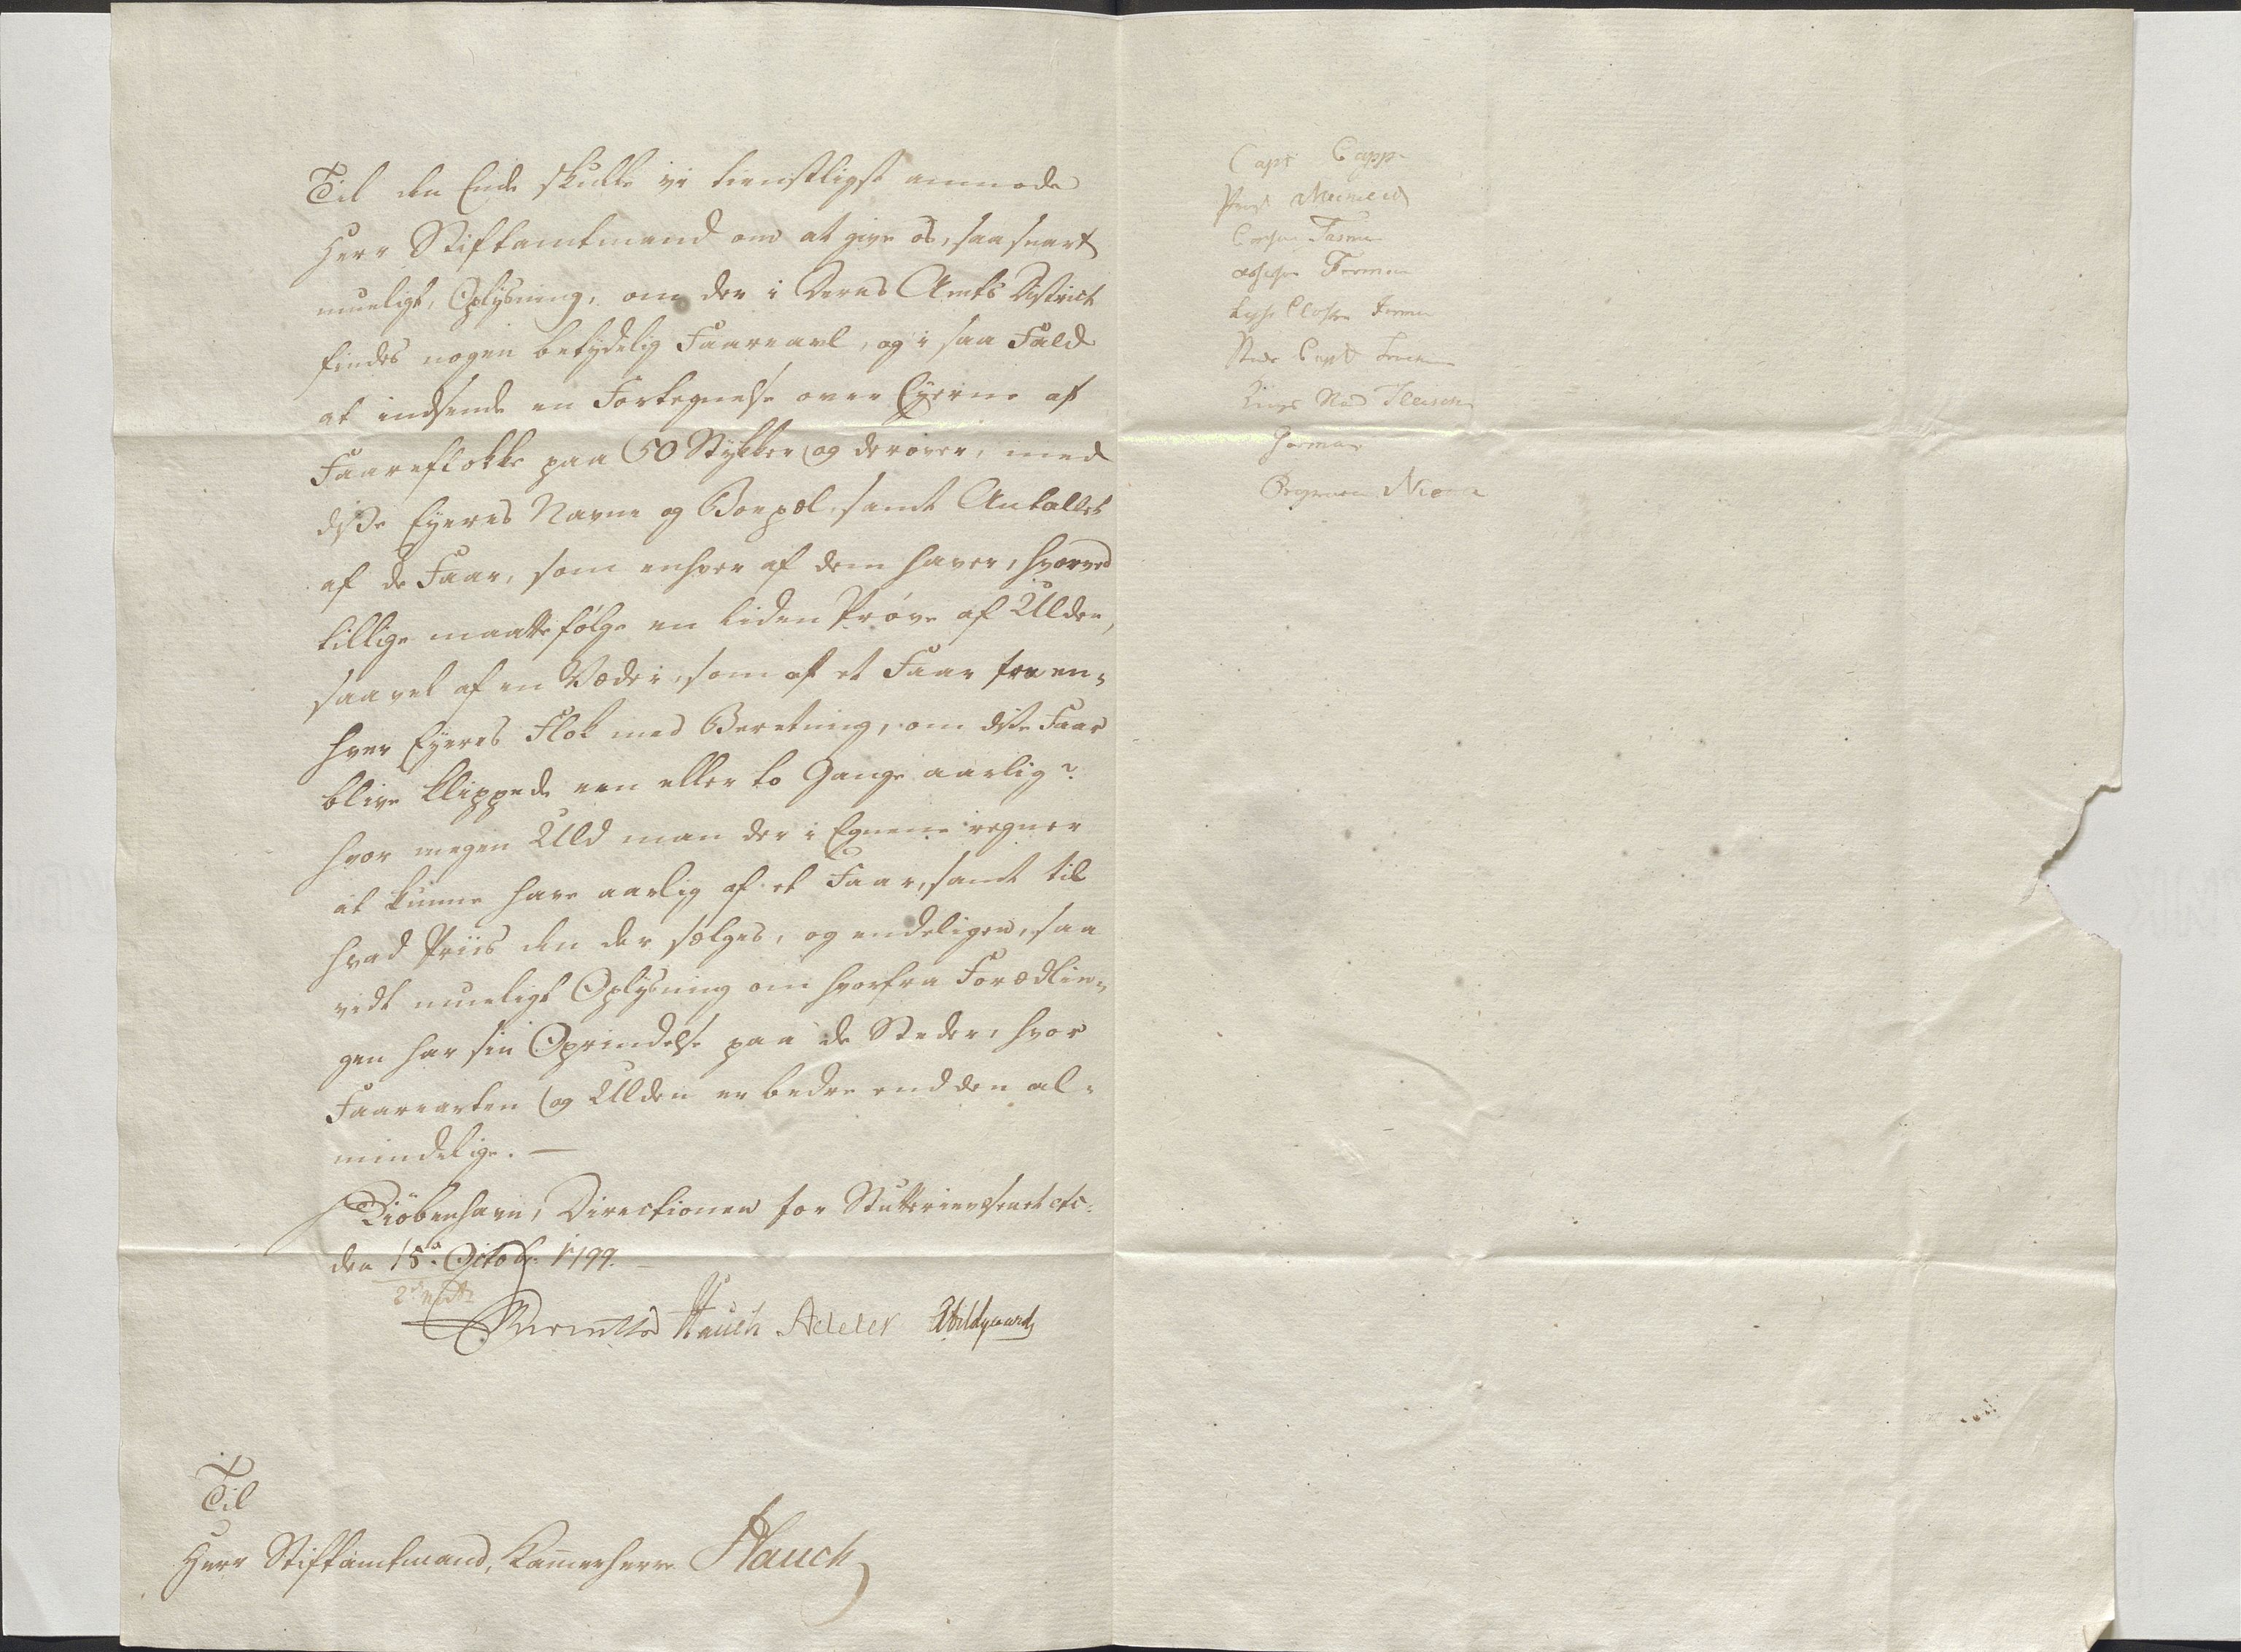 Til den Ende skulle vi tienstligst anmode
Herr Stiftamtmand om at give os, saa snart
mueligt, Oplysning, om der i Deres Amts District
findes nogen betydelig Faareavl, og i saa Fald
at indsende en Fortegnelse over Eyerne af
Faareflokke paa 50 Stykker og derover, med
disse Eyeres Navne og Boepæl, samt Antallet
af de Faar, som enhver af dem haver, hvorved
tillige maatte følge en liden Prøve af Ulden,
saavel af en Væder, som af et Faar fra en-
hver Eyeres Flok med Beretning, om disse Faar
blive klippede een eller to Gange aarlig?
hvor megen Uld man der i Egnene regner
at kunne have aarlig af et Faar, samt til
hvad Priis den der sælges, og endeligen, saa
vidt mueligt Oplysning om hvorfra Forædlin-
gen har sin Oprindelse paa de Steder, hvor
Faarearten og Ulden er bedre end den al-
mindelige. —
Kiøbenhavn, Directionen for Stutterievæsenet etc.
den 15de Octobr. 1799.
Hauch Adeler Abildgaard
Til
Herr Stiftamtmand, Kammerherre Hauch
Capt